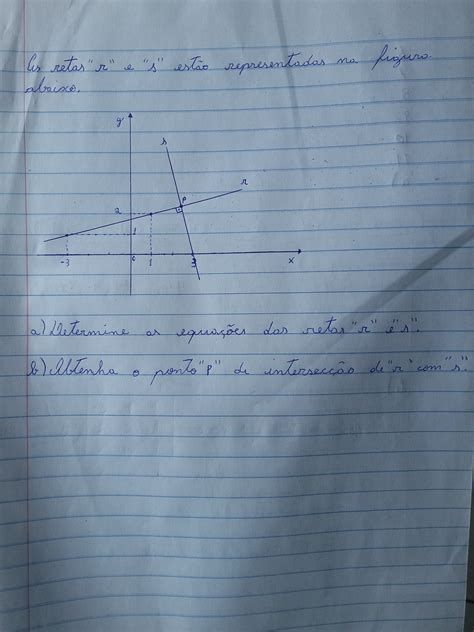 As retas "r" e "s" estão representadas na figura
abaixo.
y
s
r
P
2
1
-3
0
1
3
x
a) Determine as equações das retas "r" e "s".
b) Obtenha o ponto "P" de intersecção de "r" com "s".